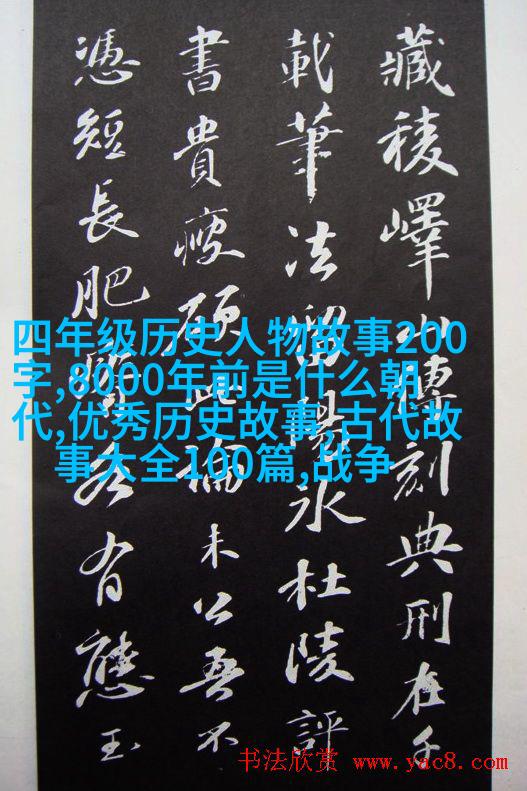 藏稜嶧山傳刻典刑在千
載筆法留陽冰杜陵評
書貴瘦硬此論未公吾不
憑短長肥瘠各有態玉
四年级历史人物故事200
字,8000年前是什么朝
代,优秀历史故事,古代故
事大全100篇,战争
书法欣赏 www.yac8.com